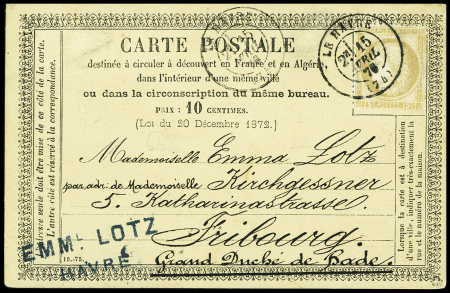 CARTE POSTALE
destinée à circuler à découvert en France et en Algérie
dans l'intérieur d'une même ville
ou dans la circonscription du même bureau.
PRIX : 10 CENTIMES.
(Loi du 20 Décembre 1872.)
LE HAVRE
15
AVRIL
76
(74)
Mademoiselle Emma Lotz
par adr. de Mademoiselle Kirchgessner
5. Katharinastrasse.
Fribourg.
Grand Duché de Bade.
EMM. LOTZ
HAVRE
L'autre côté est réservé à la correspondance.
Lorsque la carte est à destination
d'une ville, indiquer très-exactement la
rue et le numéro de la maison.